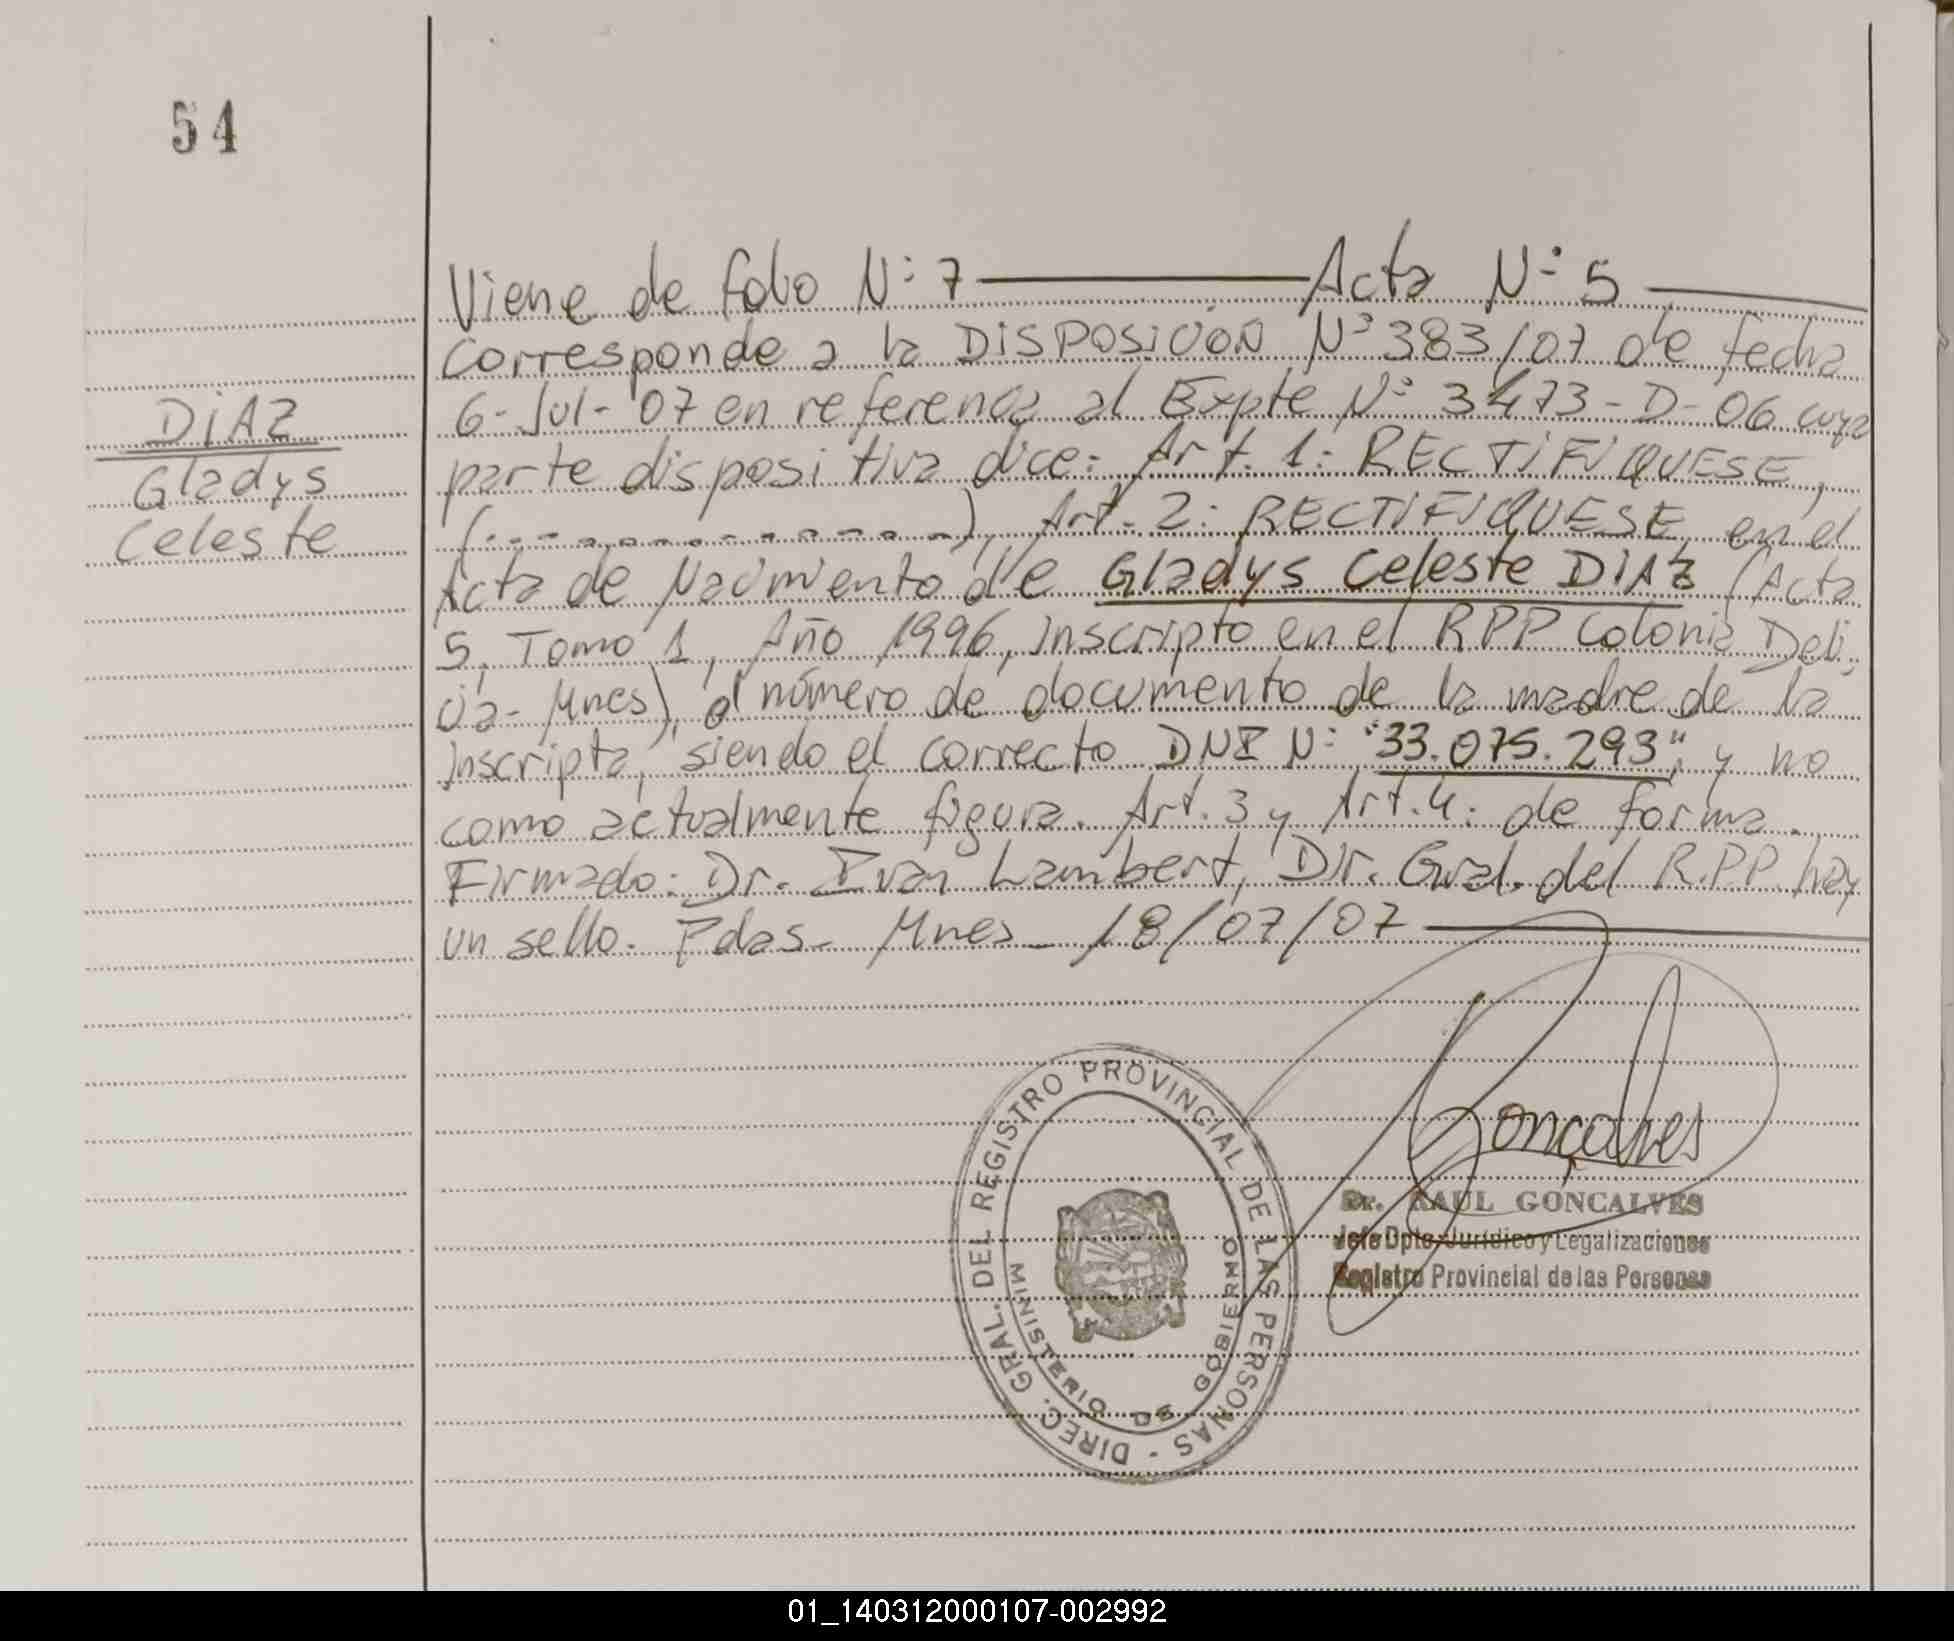 54
Viene de folo N: 7 ——— Acta N: 5 ———
corresponde a la DISPOSICIÓN Nº 383/07 de fecha
6-Jul-'07 en referencia al Expte Nº 3473-D-06 cuya
parte dispositiva dice: Art. 1: RECTIFIQUESE,
(..............), Art. 2: RECTIFIQUESE en el
Acta de Nacimiento de Gladys Celeste DIAZ (Acta
5, Tomo 1, Año 1996, inscripto en el RPP Colonia Deli-
cia- Mnes), el número de documento de la madre de la
inscripta, siendo el correcto DNI N: "33.075.293", y no
como actualmente figura. Art. 3 y Art. 4: de forma.
Firmado: Dr. Ivan Lambert, Dir. Gral. del R.P.P. hay
un sello. Pdas- Mnes- 18/07/07 ———
DIAZ
Gladys
Celeste
Gonçalves
Dr. RAUL GONCALVES
Jefe Dpto. Jurídico y Legalizaciones
Registro Provincial de las Personas
DIREC. GRAL. DEL REGISTRO PROVINCIAL DE LAS PERSONAS -
MINISTERIO DE GOBIERNO
01_140312000107-002992